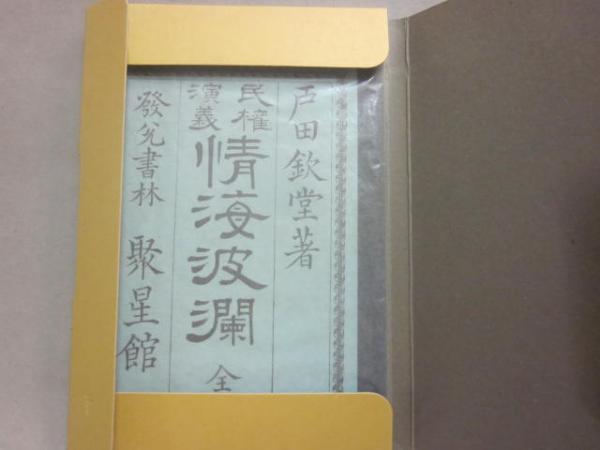 戸田欽堂著
民権
演義
情海波瀾 全
發兌書林 聚星館